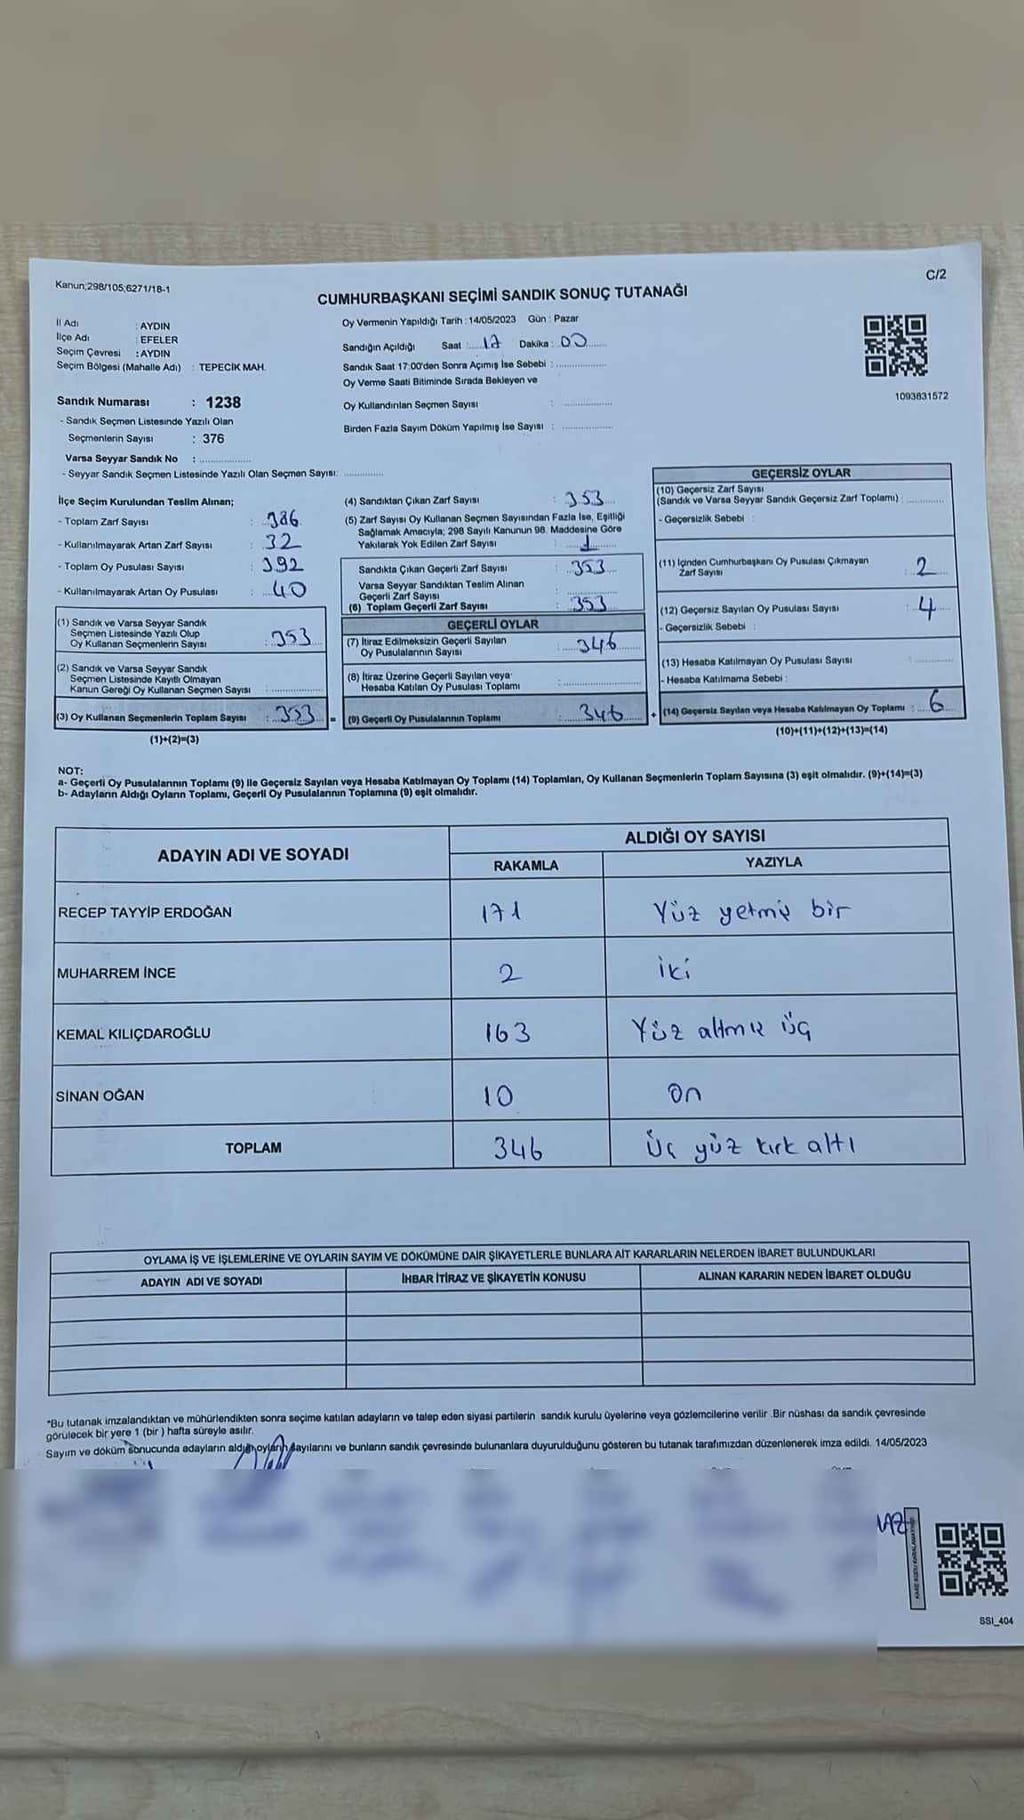 Kanun;298/105;6271/18-1
C/2
CUMHURBAŞKANI SEÇİMİ SANDIK SONUÇ TUTANAĞI
İl Adı : AYDIN
İlçe Adı : EFELER
Seçim Çevresi : AYDIN
Seçim Bölgesi (Mahalle Adı) : TEPECİK MAH.
Sandık Numarası : 1238
- Sandık Seçmen Listesinde Yazılı Olan
Seçmenlerin Sayısı : 376
Varsa Seyyar Sandık No :
- Seyyar Sandık Seçmen Listesinde Yazılı Olan Seçmen Sayısı:
Oy Vermenin Yapıldığı Tarih : 14/05/2023 Gün : Pazar
Sandığın Açıldığı Saat : 17 Dakika : 00
Sandık Saat 17:00'den Sonra Açımış İse Sebebi :
Oy Verme Saati Bitiminde Sırada Bekleyen ve
Oy Kullandırılan Seçmen Sayısı :
Birden Fazla Sayım Döküm Yapılmış İse Sayısı :
1093831572
İlçe Seçim Kurulundan Teslim Alınan;
- Toplam Zarf Sayısı : 386
- Kullanılmayarak Artan Zarf Sayısı : 32
- Toplam Oy Pusulası Sayısı : 392
- Kullanılmayarak Artan Oy Pusulası : 40
(1) Sandık ve Varsa Seyyar Sandık
Seçmen Listesinde Yazılı Olup
Oy Kullanan Seçmenlerin Sayısı : 353
(2) Sandık ve Varsa Seyyar Sandık
Seçmen Listesinde Kayıtlı Olmayan
Kanun Gereği Oy Kullanan Seçmen Sayısı :
(3) Oy Kullanan Seçmenlerin Toplam Sayısı : 353 =
(1)+(2)=(3)
(4) Sandıktan Çıkan Zarf Sayısı : 353
(5) Zarf Sayısı Oy Kullanan Seçmen Sayısından Fazla İse, Eşitliği
Sağlamak Amacıyla; 298 Sayılı Kanunun 98. Maddesine Göre
Yakılarak Yok Edilen Zarf Sayısı : 1
Sandıkta Çıkan Geçerli Zarf Sayısı : 353
Varsa Seyyar Sandıktan Teslim Alınan
Geçerli Zarf Sayısı :
(6) Toplam Geçerli Zarf Sayısı : 353
GEÇERLİ OYLAR
(7) İtiraz Edilmeksizin Geçerli Sayılan
Oy Pusulalarının Sayısı : 346
(8) İtiraz Üzerine Geçerli Sayılan veya
Hesaba Katılan Oy Pusulası Toplamı :
(9) Geçerli Oy Pusulalarının Toplamı : 346 +
GEÇERSİZ OYLAR
(10) Geçersiz Zarf Sayısı
(Sandık ve Varsa Seyyar Sandık Geçersiz Zarf Toplamı) :
- Geçersizlik Sebebi :
(11) İçinden Cumhurbaşkanı Oy Pusulası Çıkmayan
Zarf Sayısı : 2
(12) Geçersiz Sayılan Oy Pusulası Sayısı : 4
- Geçersizlik Sebebi :
(13) Hesaba Katılmayan Oy Pusulası Sayısı :
- Hesaba Katılmama Sebebi :
(14) Geçersiz Sayılan veya Hesaba Katılmayan Oy Toplamı : 6
(10)+(11)+(12)+(13)=(14)
NOT:
a- Geçerli Oy Pusulalarının Toplamı (9) İle Geçersiz Sayılan veya Hesaba Katılmayan Oy Toplamı (14) Toplamları, Oy Kullanan Seçmenlerin Toplam Sayısına (3) eşit olmalıdır. (9)+(14)=(3)
b- Adayların Aldığı Oyların Toplamı, Geçerli Oy Pusulalarının Toplamına (9) eşit olmalıdır.
ADAYIN ADI VE SOYADI
ALDIĞI OY SAYISI
RAKAMLA YAZIYLA
RECEP TAYYİP ERDOĞAN 171 Yüz yetmiş bir
MUHARREM İNCE 2 iki
KEMAL KILIÇDAROĞLU 163 Yüz altmış üç
SİNAN OĞAN 10 on
TOPLAM 346 Üç yüz kırk altı
OYLAMA İŞ VE İŞLEMLERİNE VE OYLARIN SAYIM VE DÖKÜMÜNE DAİR ŞİKAYETLERLE BUNLARA AİT KARARLARIN NELERDEN İBARET BULUNDUKLARI
ADAYIN ADI VE SOYADI İHBAR İTİRAZ VE ŞİKAYETİN KONUSU ALINAN KARARIN NEDEN İBARET OLDUĞU
*Bu tutanak imzalandıktan ve mühürlendikten sonra seçime katılan adayların ve talep eden siyasi partilerin sandık kurulu üyelerine veya gözlemcilerine verilir .Bir nüshası da sandık çevresinde
görülecek bir yere 1 (bir ) hafta süreyle asılır.
Sayım ve döküm sonucunda adayların aldığı oyların sayılarını ve bunların sandık çevresinde bulunanlara duyurulduğunu gösteren bu tutanak tarafımızdan düzenlenerek imza edildi. 14/05/2023
SSI_404